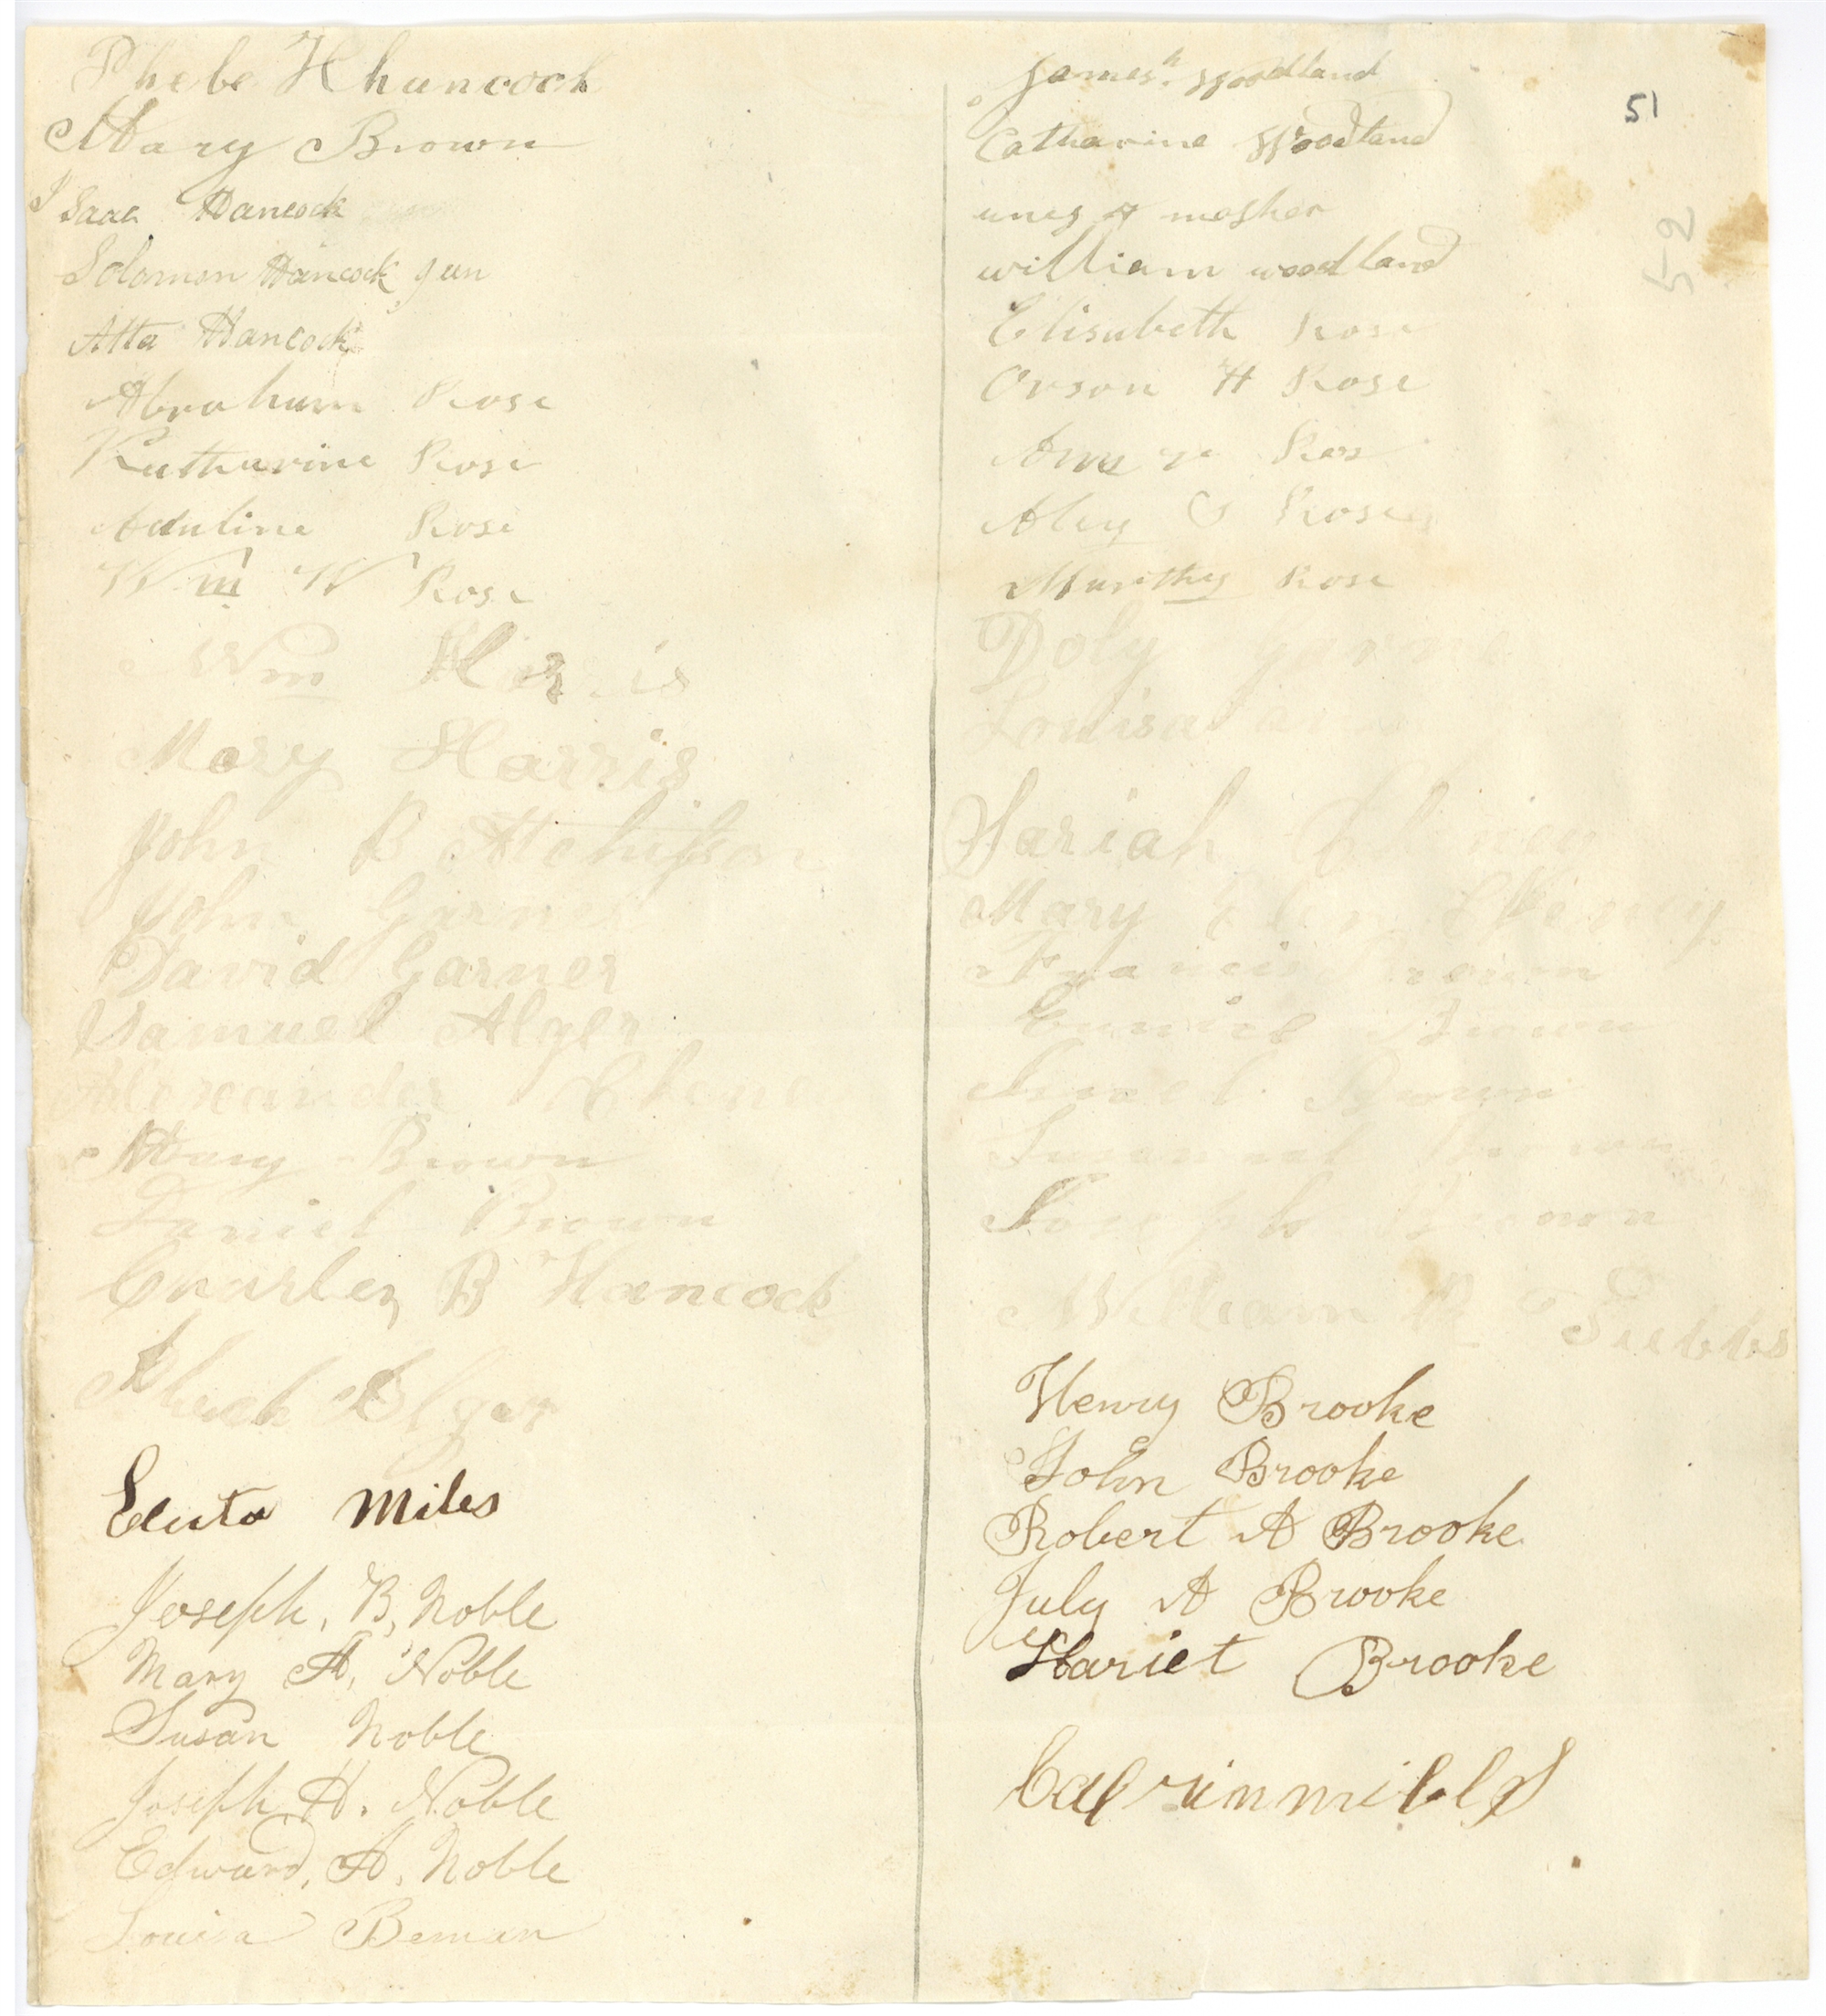 Phebe H hancock
Mary Brown
Isaac Hancock
Solomon Hancock jun
Alta Hancock
Abraham Rose
Katharine Rose
Aduline Rose
Wm W Rose
Wm Harris
Mary Harris
John B Atchisson
John Garner
David Garner
Samuel Alger
Alexander Cheney
Mary Brown
Daniel Brown
Charles B Hancock
Alger
Electa Miles
Joseph, B, Noble
Mary A, Noble
Susan Noble
Joseph H. Noble
Edward, A, Noble
Louisa Beman
51
52
James h. Woodland
Catharine Woodland
mosher
william woodland
Elisabeth Rose
Orson H Rose
Rose
Aley Rose
Marithy Rose
Doly Garner
Louisa
Sariah Cheney
Mary Elen Cheney
Francis Brown
Eunice Brown
Brown
Brown
Joseph Brown
William R Tubbs
Henry Brooke
John Brooke
Robert A Brooke
July A Brooke
Hariet Brooke